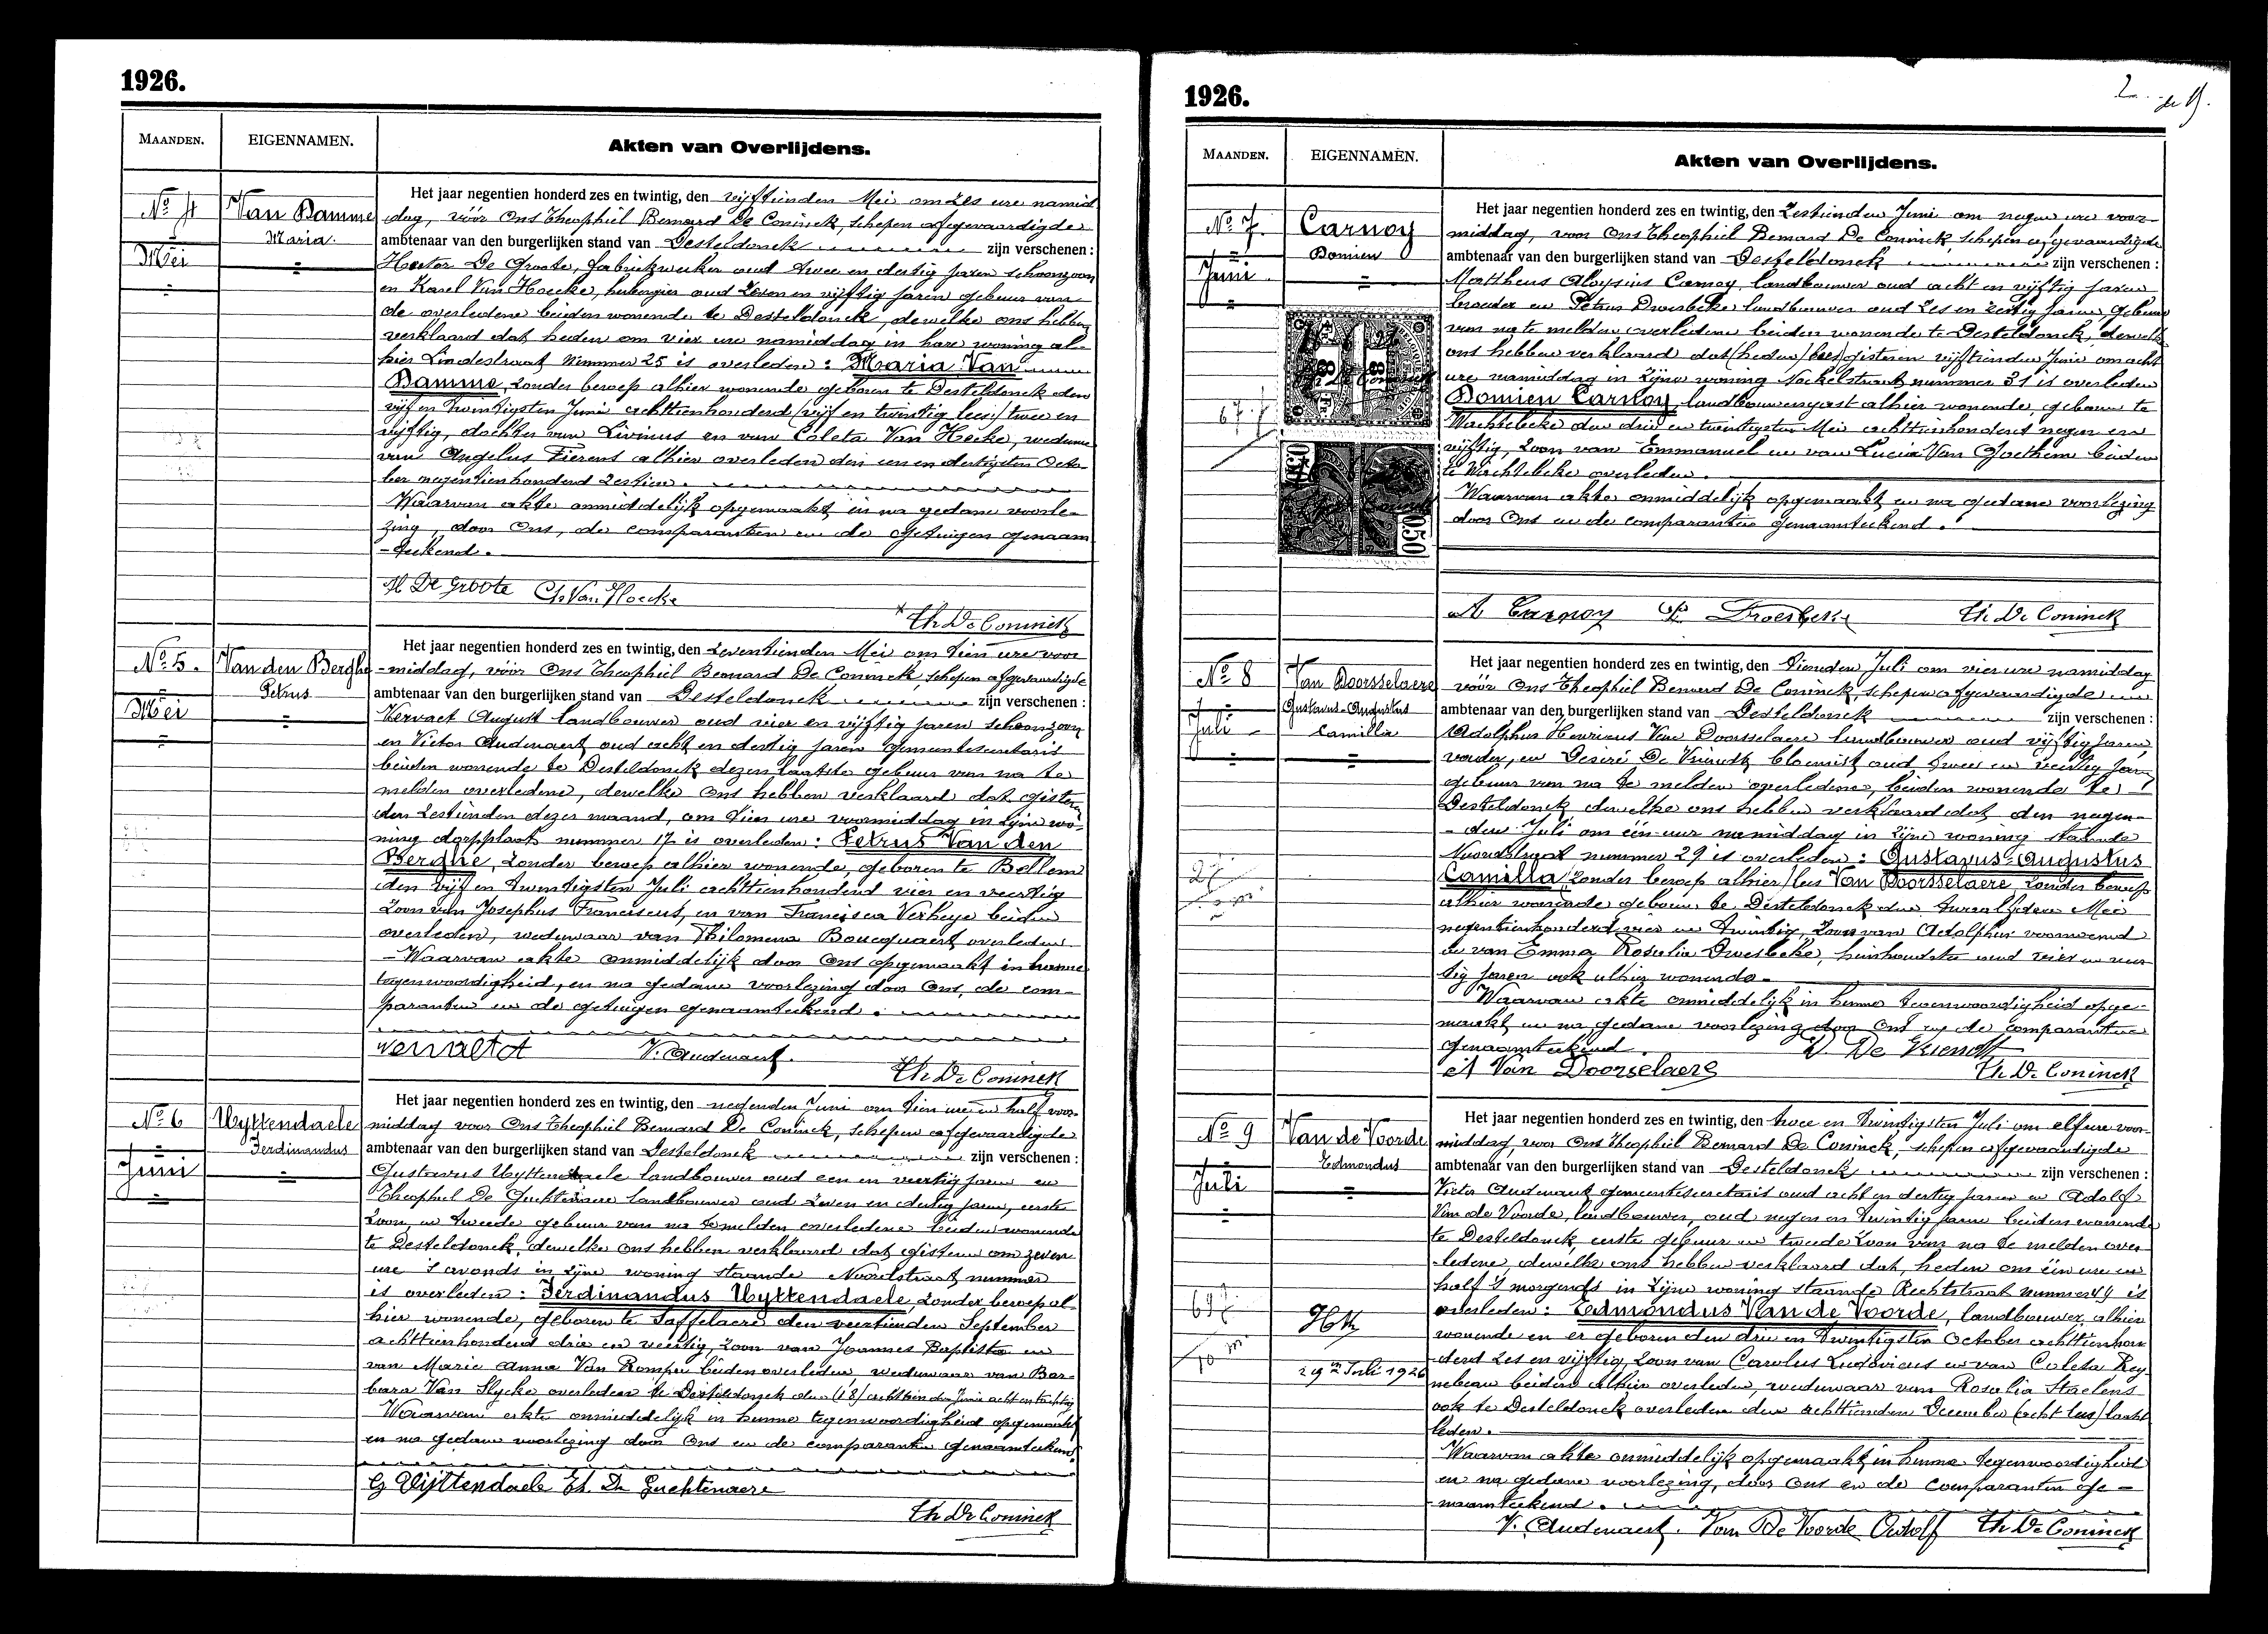 1926.
MAANDEN.
EIGENNAMEN.
Akten van Overlijdens.
No 4
Mei
Van Damme
Maria.
Het jaar negentien honderd zes en twintig, den vijftienden Mei om zes ure namid
dag, vóór Ons Theophiel Bernard De Coninck, schepen afgevaardigde
ambtenaar van den burgerlijken stand van Desteldonck zijn verschenen :
Hector De Groote, fabriekwerker oud twee en dertig jaren schoonzoon
en Karel Van Hoecke, herbergier oud zeven en vijftig jaren gebuur van
de overledene beiden wonende te Desteldonck, dewelke ons hebben
verklaard dat heden om vier ure namiddag in hare woning al-
hier Lindestraat nummer 25 is overleden : Maria Van
Damme, zonder beroep alhier wonende geboren te Desteldonck den
vijf en twintigsten Juni achttienhonderd /vijf en twintig lees/ twee en
vijftig, dochter van Livinus en van Coleta Van Hecke, weduwe
van Angelus Fierens alhier overleden den een en dertigsten Octo-
ber negentienhonderd zestien.
Waarvan akte onmiddelijk opgemaakt en na gedane voorle-
zing, door Ons, de comparanten en de getuigen genaam
-teekend.
H De Groote Ch. Van Hoecke
Th De Coninck
No 5.
Mei
Van den Berghe
Petrus
Het jaar negentien honderd zes en twintig, den zeventienden Mei om tien ure voor
-middag, vóór Ons Theophiel Bernard De Coninck, schepen afgevaardigde
ambtenaar van den burgerlijken stand van Desteldonck zijn verschenen :
Vervaet August landbouwer oud vier en vijftig jaren schoonzoon
en Victor Audenaert oud acht en dertig jaren gemeentesecretaris
beiden wonende te Desteldonck dezen laatste gebuur van na te
melden overledene, dewelke Ons hebben verklaard dat gisteren
den zestienden dezer maand, om tien ure voormiddag in zijne wo-
ning dorpplaats nummer 17 is overleden : Petrus Van den
Berghe, zonder beroep alhier wonende, geboren te Bellem
den vijf en twintigsten Juli achttienhonderd vier en veertig
zoon van Josephus Franciscus, en van Francisca Verheye beiden
overleden, weduwaar van Philomena Boucquaert overleden
-Waarvan akte onmiddelijk door Ons opgemaakt in hunne
tegenwoordigheid, en na gedane voorlezing door Ons, de com-
paranten en de getuigen genaamteekend.
V. Audenaert.
Th De Coninck
No 6
Juni
Uyttendaele
Ferdinandus
Het jaar negentien honderd zes en twintig, den negenden Juni om tien ure en half voor-
middag voor Ons Theophiel Bernard De Coninck, schepen afgevaardigde
ambtenaar van den burgerlijken stand van Desteldonck zijn verschenen :
Gustavus Uyttendaele landbouwer oud een en veertig jaren en
Theophiel De Guchtenaere landbouwer oud zeven en dertig jaren, eerste
zoon, en tweede gebuur van na temelden overledene beiden wonende
te Desteldonck, dewelke ons hebben verklaard dat gisteren om zeven
ure 's avonds in zijne woning staande Noordstraat nummer
is overleden : Ferdinandus Uyttendaele, zonder beroep al-
hier wonende, geboren te Saffelaere den veertienden September
achttienhonderd drie en veertig, zoon van Joannes Baptista en
van Marie Anna Van Rompu beiden overleden, weduwaar van Bar-
bara Van Slycke overleden te Desteldonck den (18) achttienden Juni
Waarvan akte onmiddelijk in hunne tegenwoordigheid opgemaakt
en na gedane voorlezing door Ons en de comparanten genaamteekend
G Uyttendaele Th. De Guchtenaere
Th De Coninck
1926.
MAANDEN.
EIGENNAMEN.
Akten van Overlijdens.
No 7.
Juni
Carnoy
Domien
Het jaar negentien honderd zes en twintig, den zestienden Juni om negen ure voor-
middag, voor Ons Theophiel Bernard De Coninck schepen afgevaardigde
ambtenaar van den burgerlijken stand van Desteldonck zijn verschenen :
Mattheus Aloysius Carnoy, landbouwer oud acht en vijftig jaren
broeder en Petrus Droesbeke landbouwer oud zes en zestig jaren gebuur
van na te melden overledene beiden wonende te Desteldonck, dewelke
ons hebben verklaard dat /heden/ lees/ gisteren vijftienden Juni om acht
ure namiddag in zijne woning nummer 31 is overleden
Domien Carnoy, landbouwersgast alhier wonende, geboren te
Wachtebeke den drie en twintigsten Mei achttienhonderd negen en
vijftig, zoon van Emmanuel en van Lucia Van Goethem beiden
te Wachtebeke overleden.
Waarvan akte onmiddelijk opgemaakt en na gedane voorlezing
door Ons en de comparanten genaamteekend.
0.50
A Carnoy P. Droesbeke Th De Coninck
No 8
Juli
Van Doorsselaere
Gustavus-Augustus
Camilla
Het jaar negentien honderd zes en twintig, den tienden Juli om vier ure namiddag
vóór Ons Theophiel Bernard De Coninck, schepen afgevaardigde
ambtenaar van den burgerlijken stand van Desteldonck zijn verschenen :
Adolphus Henricus Van Doorsselaere landbouwer oud vijftig jaren
vader, en Desiré De Vriendt bloemist oud twee en veertig jaren
gebuur van na te melden overledene, beiden wonende te
Desteldonck dewelke ons hebben verklaard dat den negen-
-den Juli om één uur namiddag in zijne woning staande
Noordstraat nummer 29 is overleden : Gustavus-Augustus
Camilla, zonder beroep alhier /lees Van Doorsselaere, zonder beroep
alhier wonende geboren te Desteldonck den twaalfden Mei
negentienhonderd vier en twintig, zoon van Adolphus voornoemd
en van Emma Rosalia Droesbeke, huishoudster oud vier en veer
tig jaren ook alhier wonende-
Waarvan akte onmiddelijk in hunne tegenwoordigheid opge-
maakt en na gedane voorlezing door Ons en de comparanten
genaamteekend. D. De Vriendt
A Van Doorselaere Th De Coninck
No 9
Juli
Van de Voorde
Edmondus
29en Juli 1926
Het jaar negentien honderd zes en twintig, den twee en twintigsten Juli om elf ure voor-
middag, voor Ons Theophiel Bernard De Coninck, schepen afgevaardigde
ambtenaar van den burgerlijken stand van Desteldonck zijn verschenen :
Victor Audenaert gemeentesecretaris oud acht en dertig jaren en Adolf
Van de Voorde, landbouwer, oud negen en twintig jaren beiden wonende
te Desteldonck, eerste gebuur en tweede zoon van na te melden over-
ledene, dewelke ons hebben verklaard dat, heden om één ure en
half 's morgends in zijne woning staande Rechtstraat nummer 44 is
overleden : Edmondus Van de Voorde, landbouwer, alhier
wonende en er geboren den drie en twintigsten October achttienhon
derd zes en vijftig, zoon van Carolus Ludovicus en van Coleta Rey
nebeau beiden alhier overleden, weduwaar van Rosalia Staelens
ook te Desteldonck overleden den achttienden December
leden.
Waarvan akte onmiddelijk opgemaakt in hunne tegenwoordigheid
en na gedane voorlezing, door Ons en de comparanten ge-
naamteekend.
V. Audenaert. Van De Voorde Adolf Th De Coninck